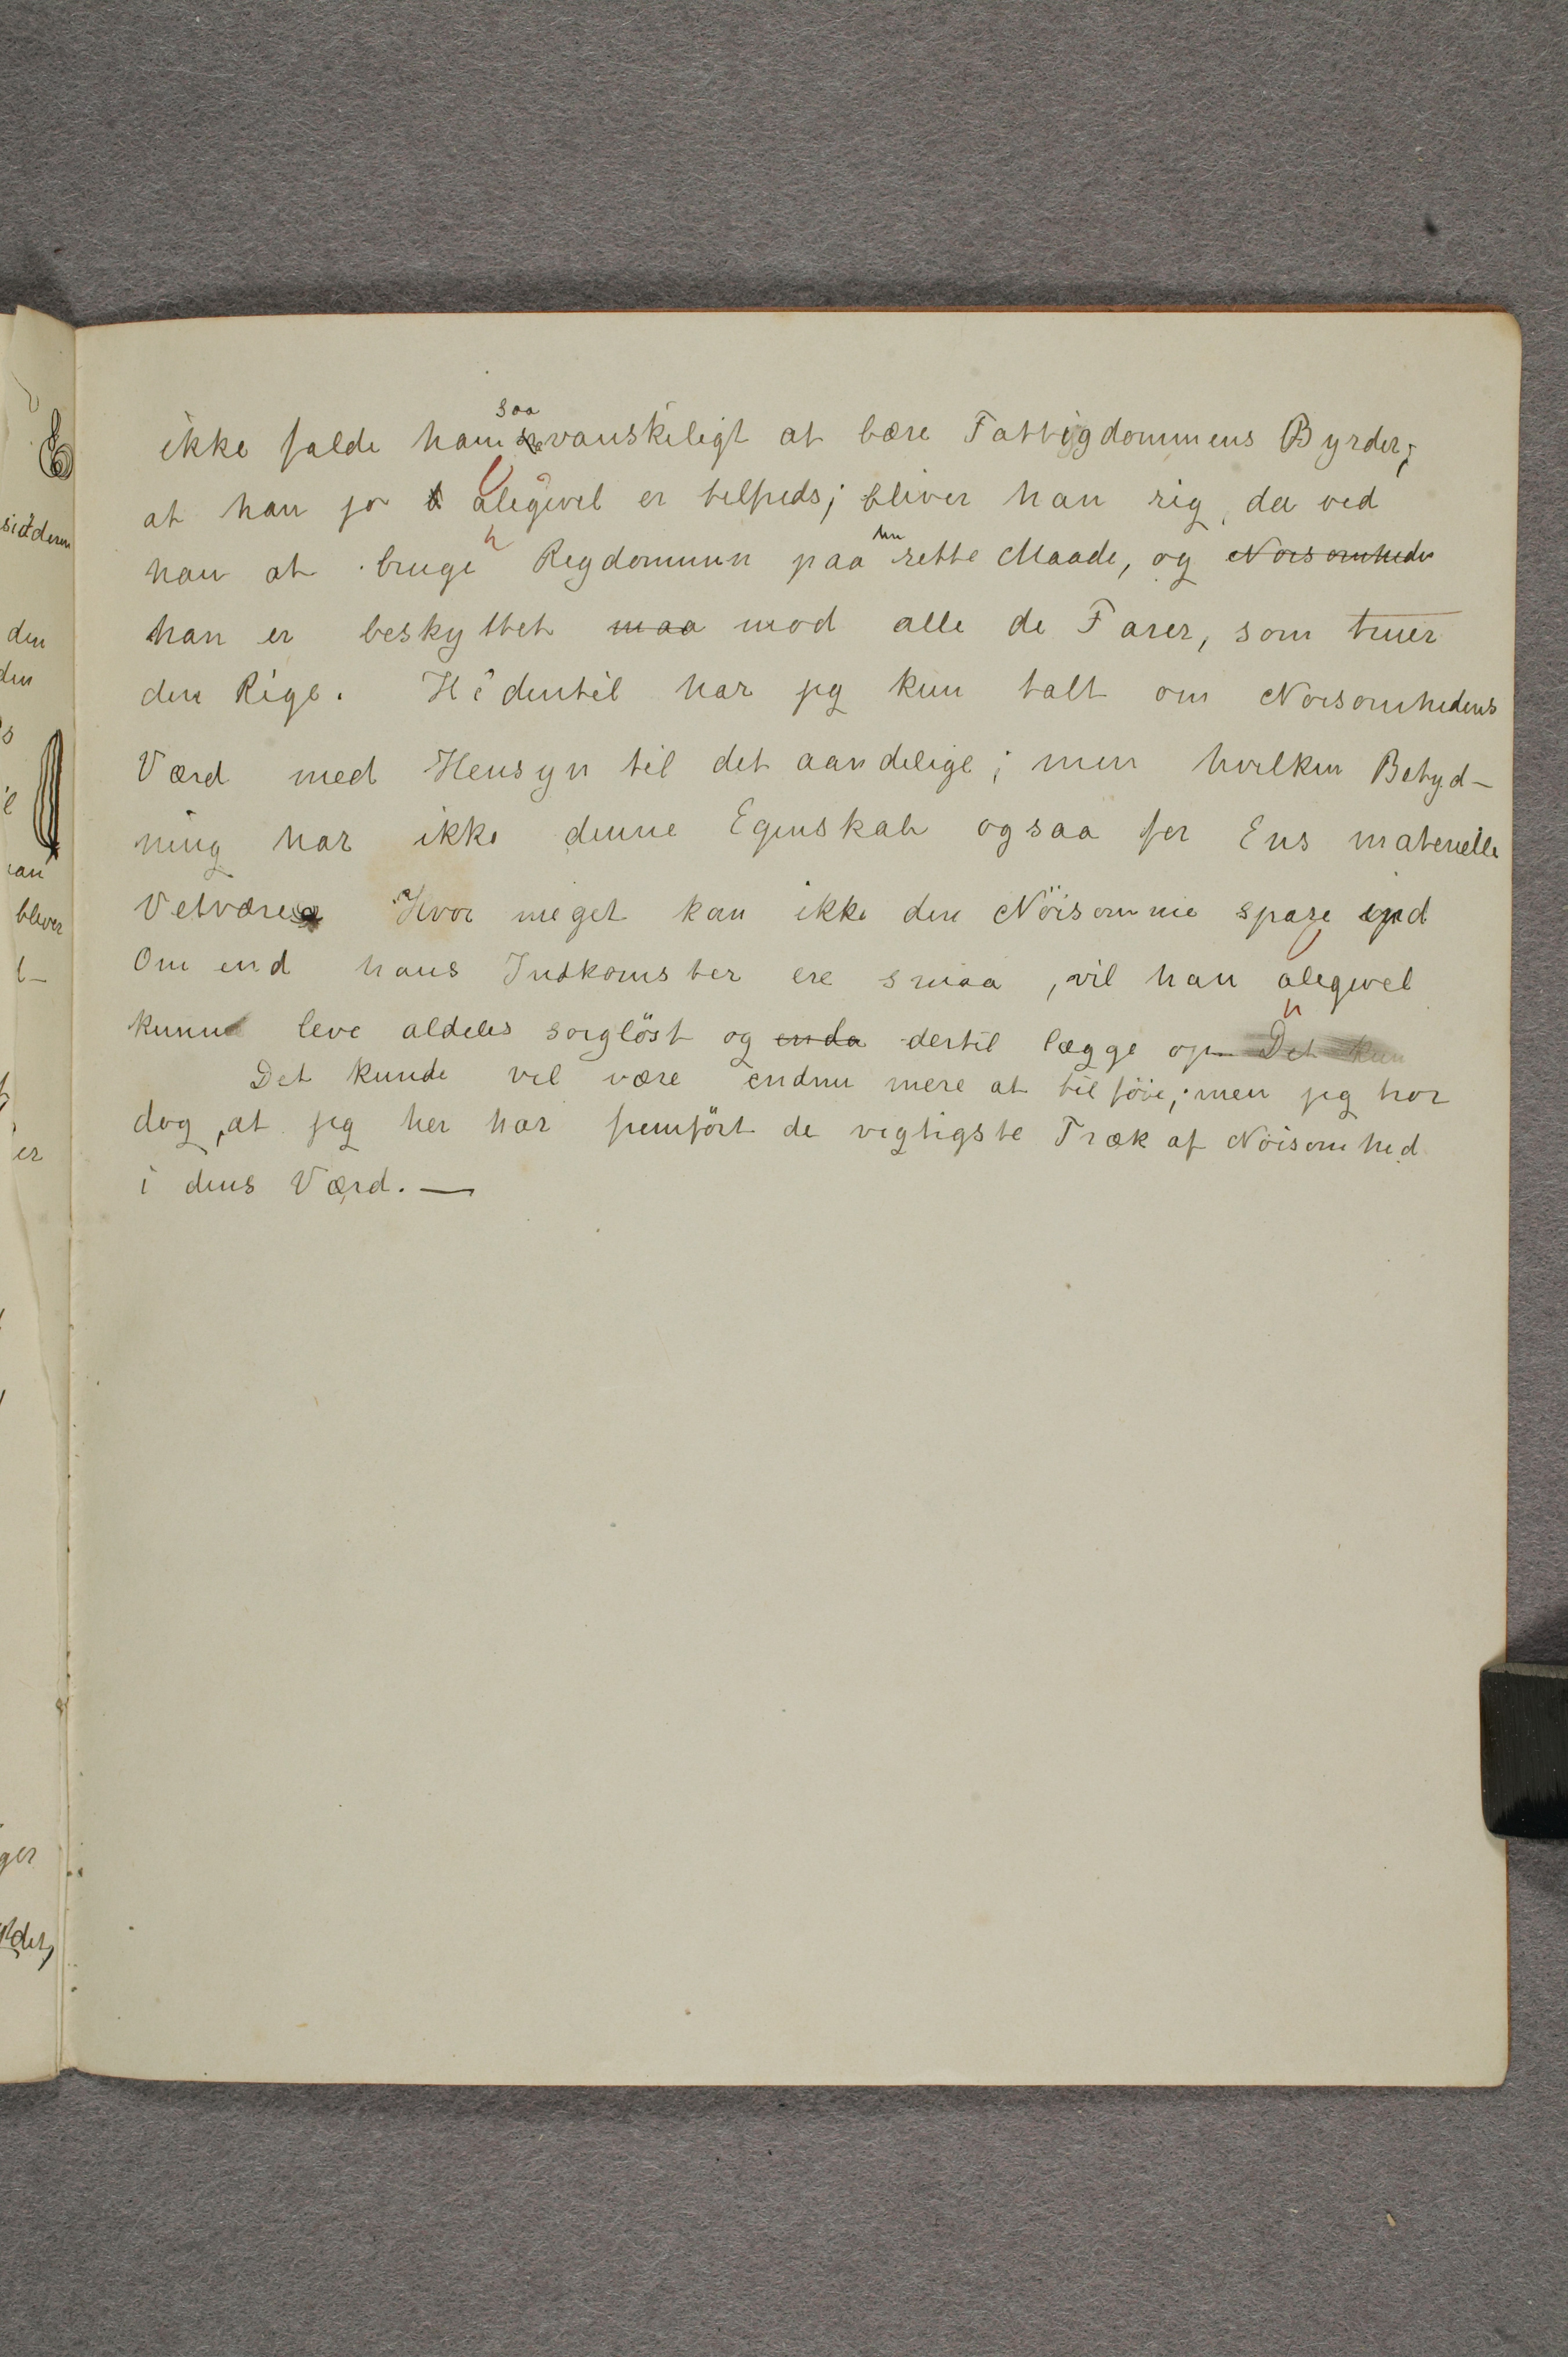 ikke falde ham saa vanskeligt at bære Fattigdommens Byrder;
at han jo aligevel er tilfreds; bliver han rig, da ved
han at bruge Rigdommen paa rette Maade, og Noisomheden
han er beskyttet maa mod alle de Farer, som truer
den Rige. Hidentil har jeg kun talt om Noisomhedens
Værd med Hensyn til det aandelige; men hvilken Betyd-
ning har ikke denne Egenskab ogsaa for Ens materielle
Velvære Hvor meget kan ikke den Nöisomme spare ind
Om end hans Indkomster ere smaa, vil han aligevel
kunne leve aldeles sorglöst og enda dertil lægge op Det kun
Det kunde vel være endnu mere at tilföie; men jeg tror
dog, at jeg her har fremfört de vigtigste Træk af Nöisomhed
i dens Værd. —